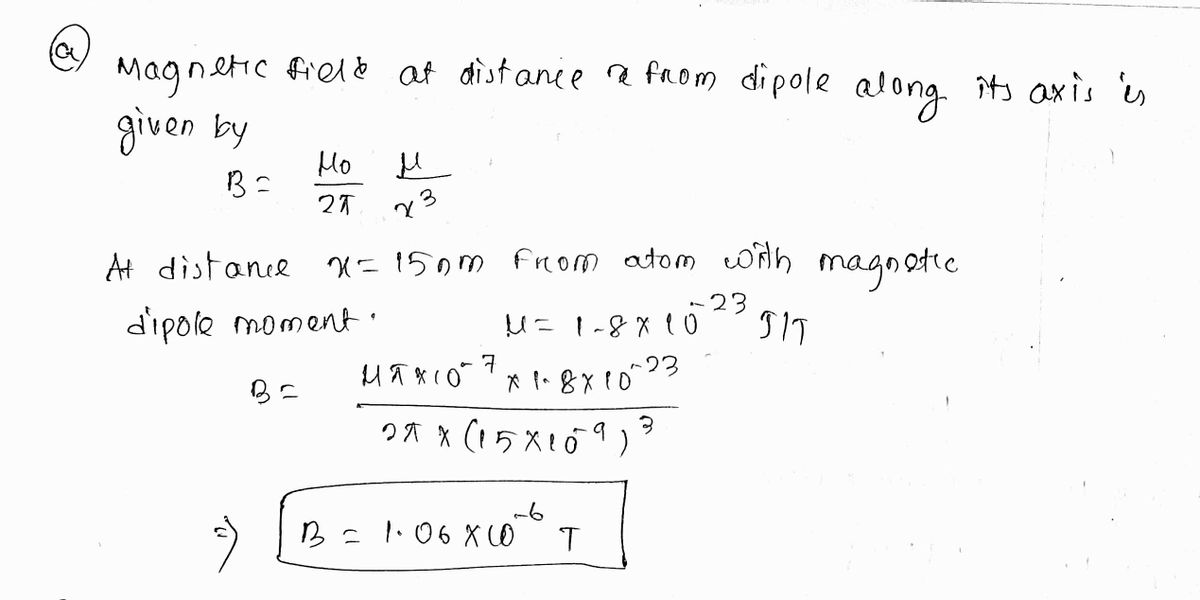 (a) Magnetic field at distance x from dipole along its axis is
given by
B = μ0/2π μ/x^3
At distance x = 15nm from atom with magnetic
dipole moment. μ = 1.8 × 10^-23 J/T
B = 4π×10^-7 × 1.8×10^-23 / 2π × (15×10^-9)^3
⇒ B = 1.06 × 10^-6 T